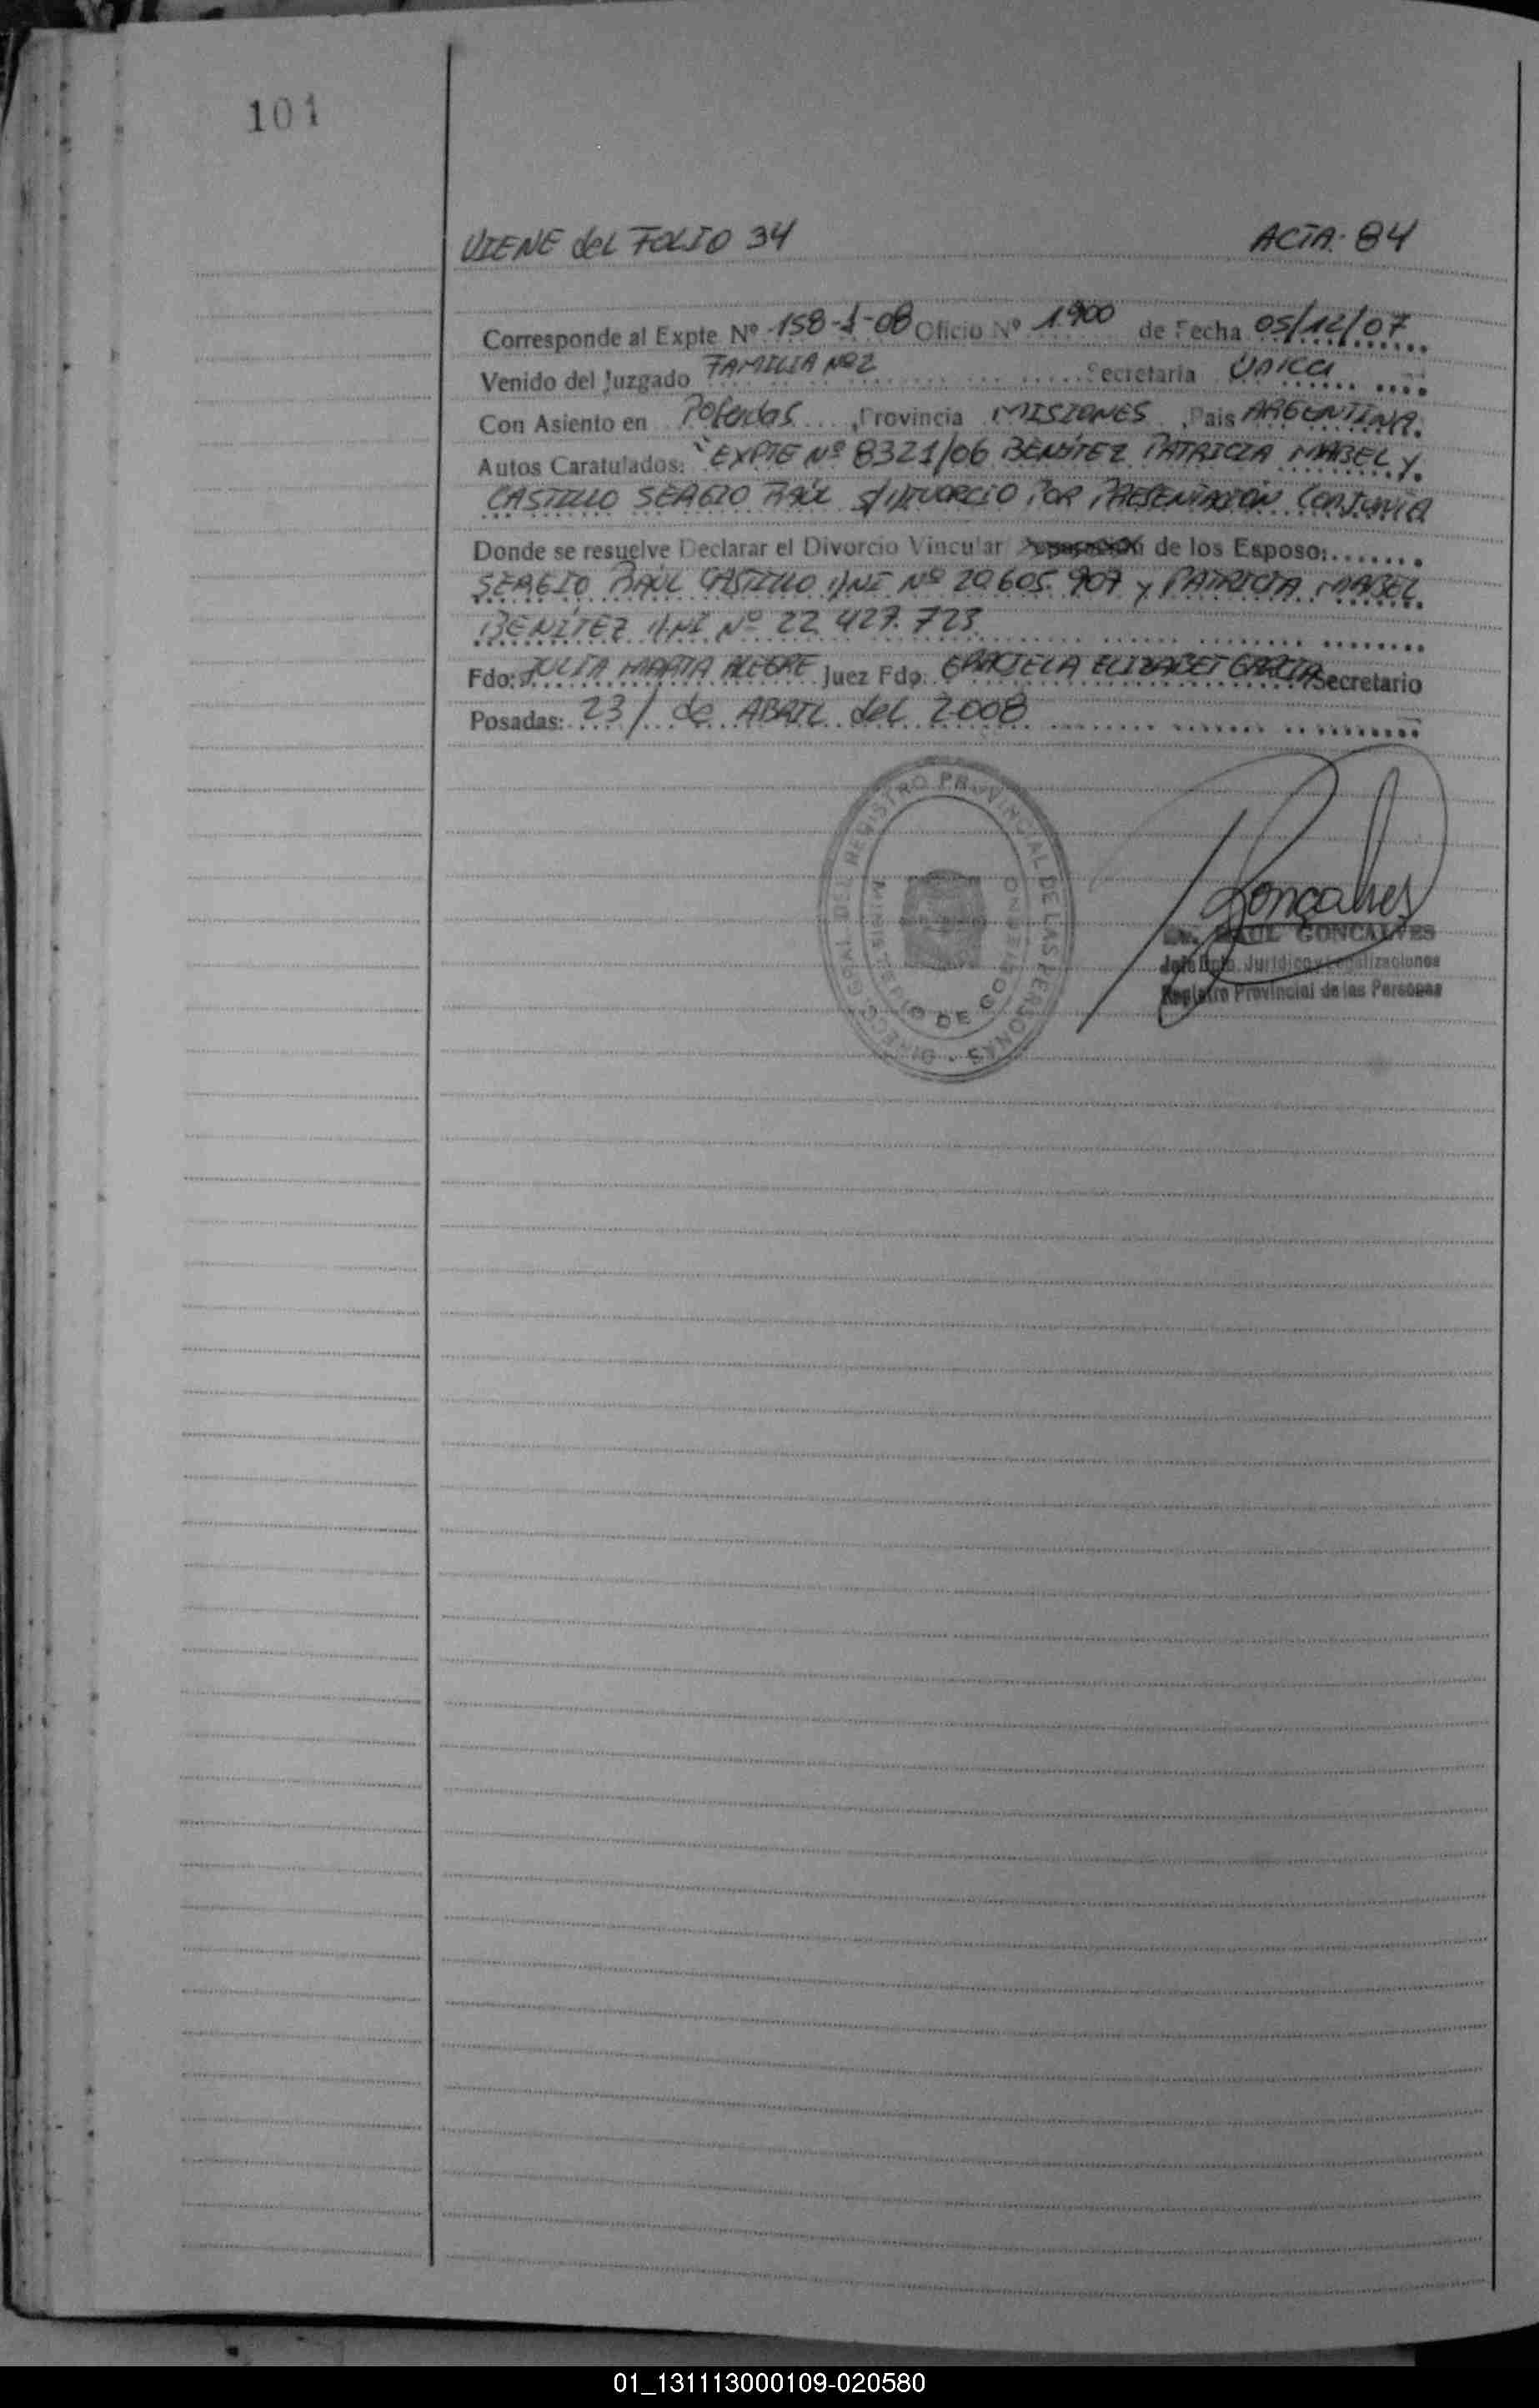 101
VIENE del FOLIO 34 ACTA: 84
Corresponde al Expte Nº 158-1-08 Oficio Nº 1.900 de Fecha 05/12/07
Venido del Juzgado FAMILIA Nº2 Secretaria ÚNICA
Con Asiento en Posadas, Provincia MISIONES, Pais ARGENTINA.
Autos Caratulados: "EXPTE Nº 8321/06 BENÍTEZ PATRICIA MABEL Y
CASTILLO SERGIO RAÚL S/DIVORCIO POR PRESENTACIÓN CONJUNTA
Donde se resuelve Declarar el Divorcio Vincular de los Esposo:
SERGIO RAÚL CASTILLO DNI Nº 20.605.907 y PATRICIA MABEL
BENÍTEZ DNI Nº 22.427.723
Fdo: JULIA MARTA ALEGRE Juez Fdo: GRACIELA ELIZABET GARCIA Secretario
Posadas: 23/ de ABRIL del 2008
DIRECC. GRAL. DEL REGISTRO PROVINCIAL DE LAS PERSONAS
MINISTERIO DE GOBIERNO
Goncalves
RAUL GONCALVES
Jefe Dpto. Jurídico y Legalizaciones
Registro Provincial de las Personas
01_131113000109-020580